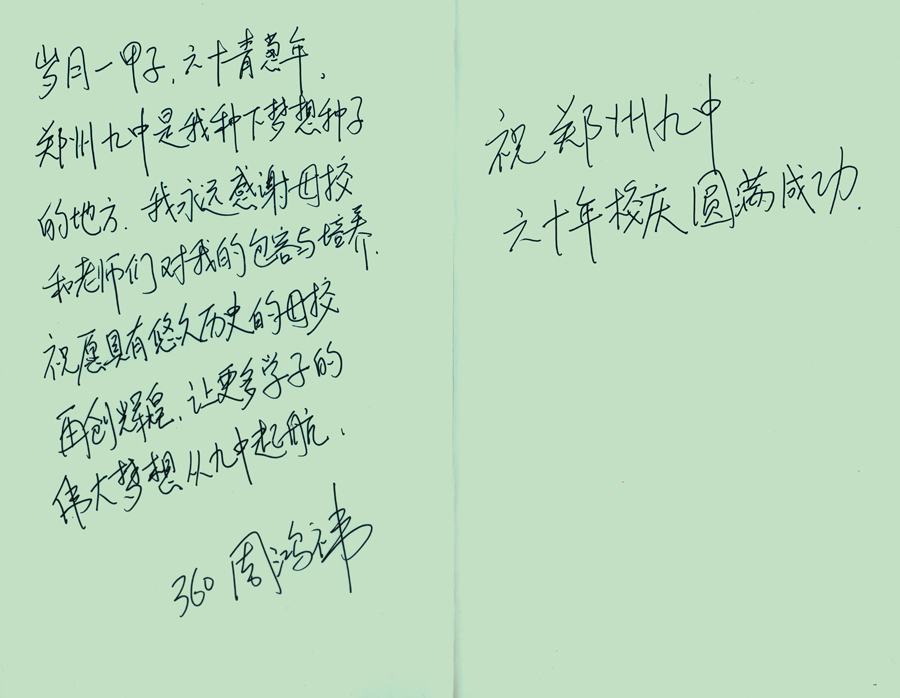 岁月一甲子,六十青葱年,
郑州九中是我种下梦想种子
的地方.我永远感谢母校
和老师们对我的包容与培养.
祝愿具有悠久历史的母校
再创辉煌,让更多学子的
伟大梦想从九中起航.
360 周鸿祎
祝郑州九中
六十年校庆圆满成功.